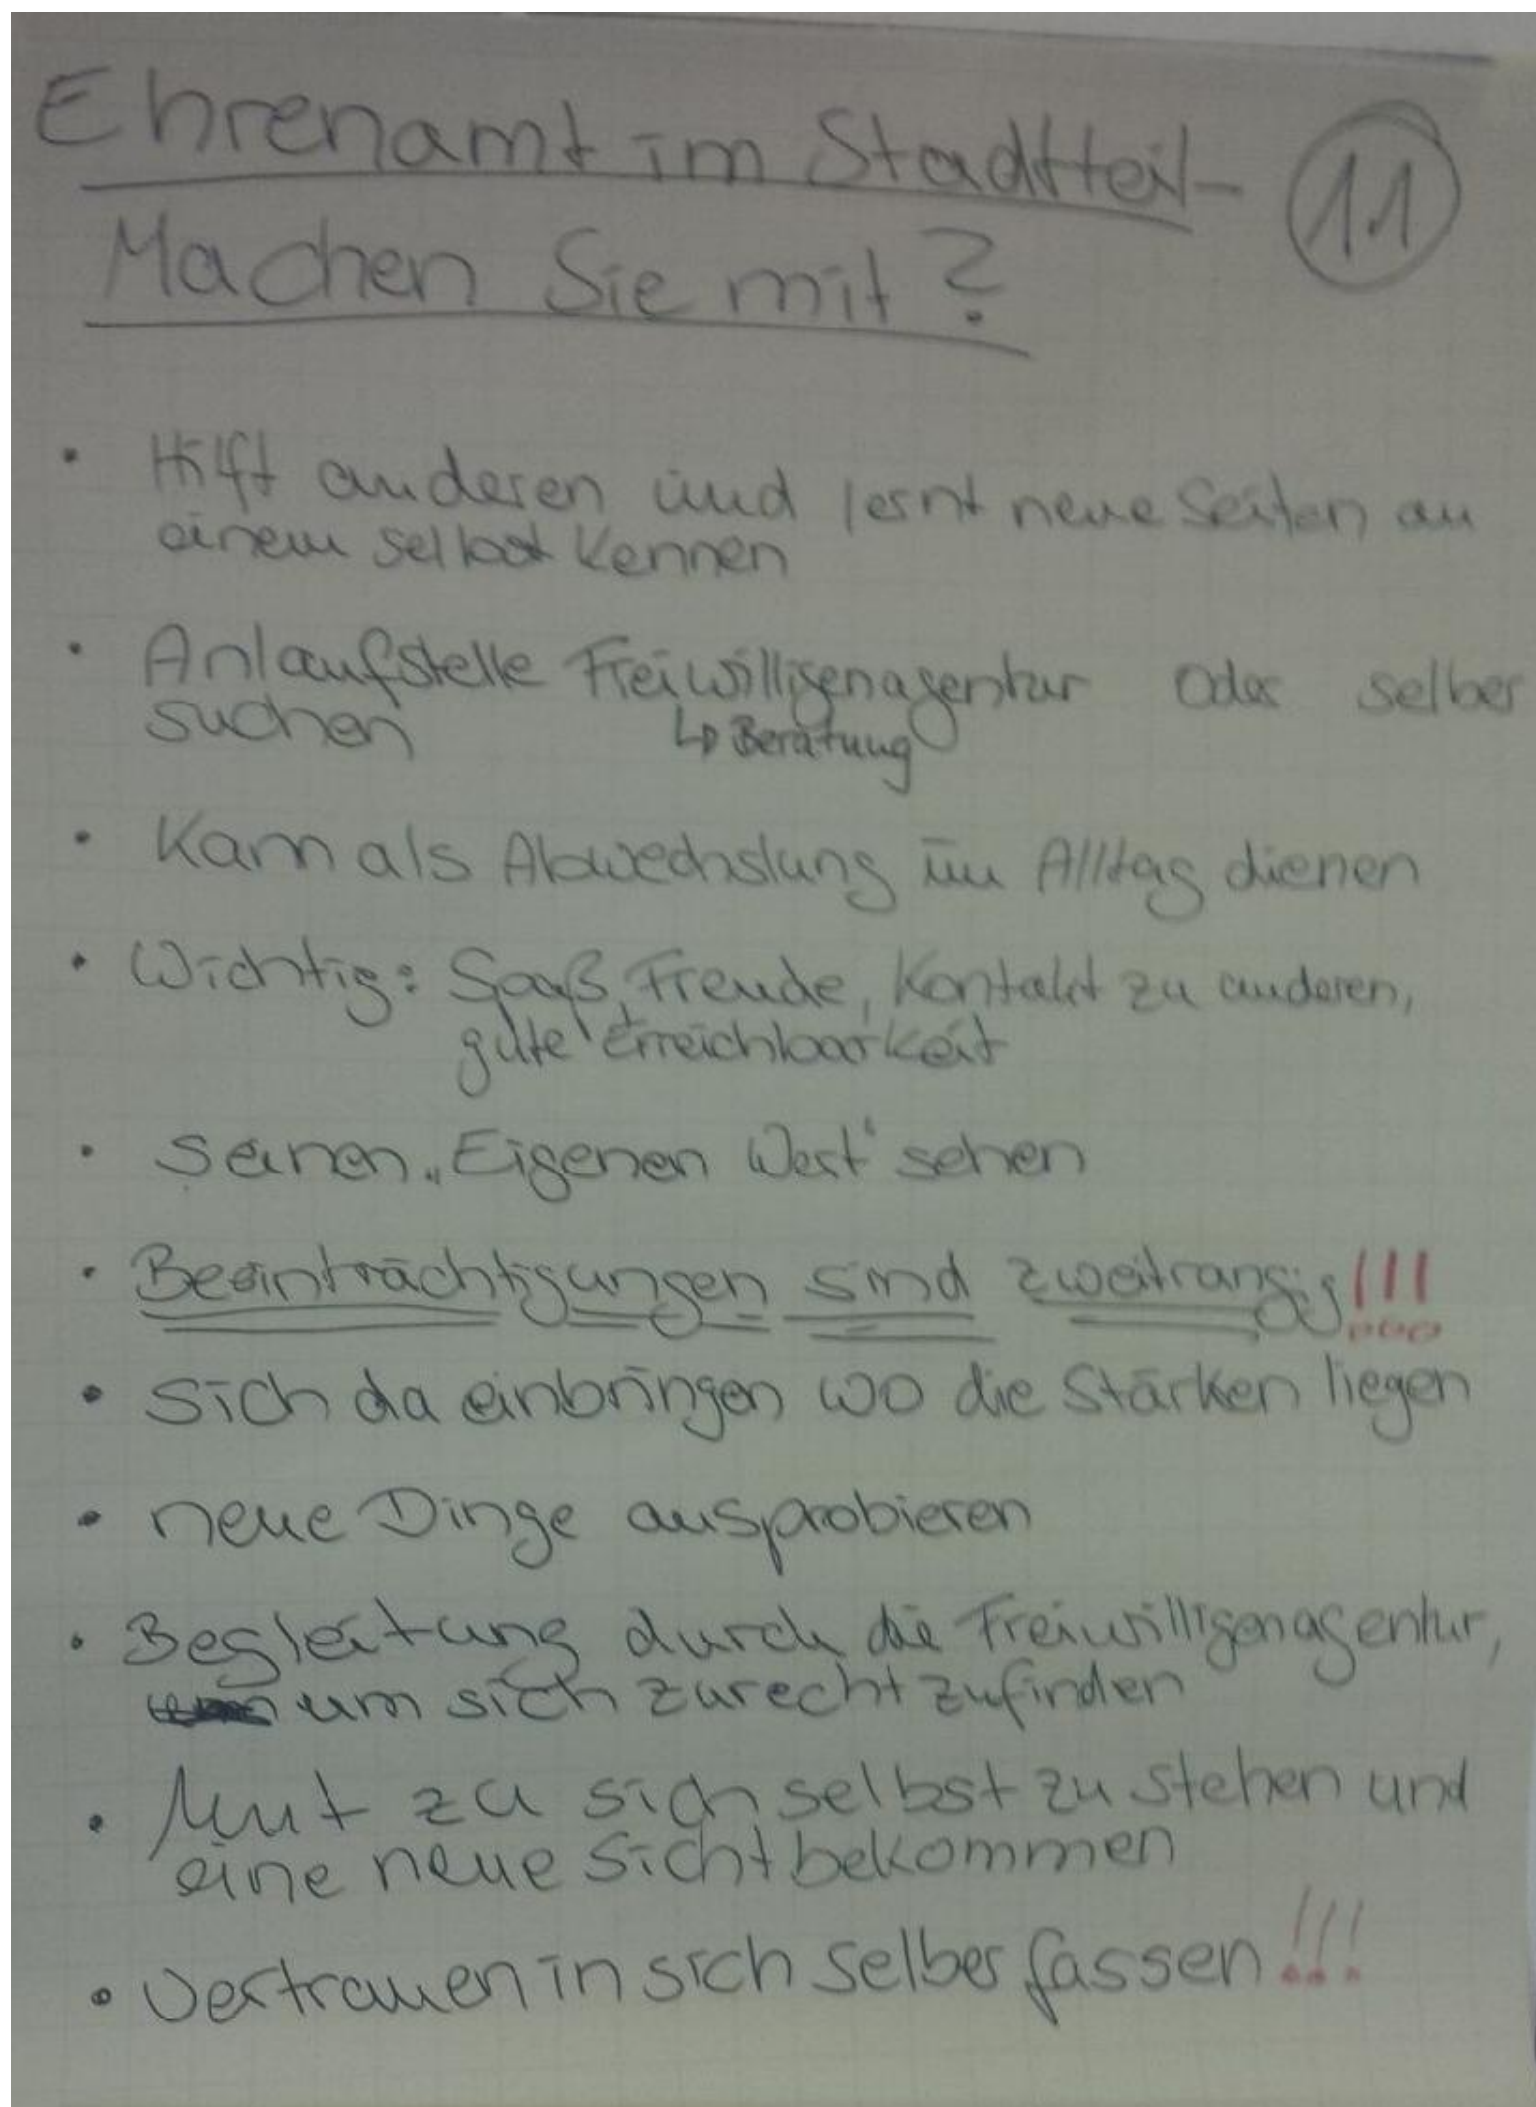 Ehrenamt im Stadtteil-
11
Machen Sie mit?
• Hilft anderen und lernt neue Seiten an
einem selbst kennen
• Anlaufstelle Freiwilligenagentur oder selber
suchen
↳ Beratung
• Kann als Abwechslung im Alltag dienen
• Wichtig: Spaß, Freude, Kontakt zu anderen,
gute Erreichbarkeit
• seinen „Eigenen Wert" sehen
• Beeinträchtigungen sind zweitrangig!!!
• Sich da einbringen wo die Stärken liegen
• neue Dinge ausprobieren
• Begleitung durch die Freiwilligenagentur,
um sich zurecht zufinden
• Mut zu sich selbst zu stehen und
eine neue Sicht bekommen
• Vertrauen in sich selber fassen!!!